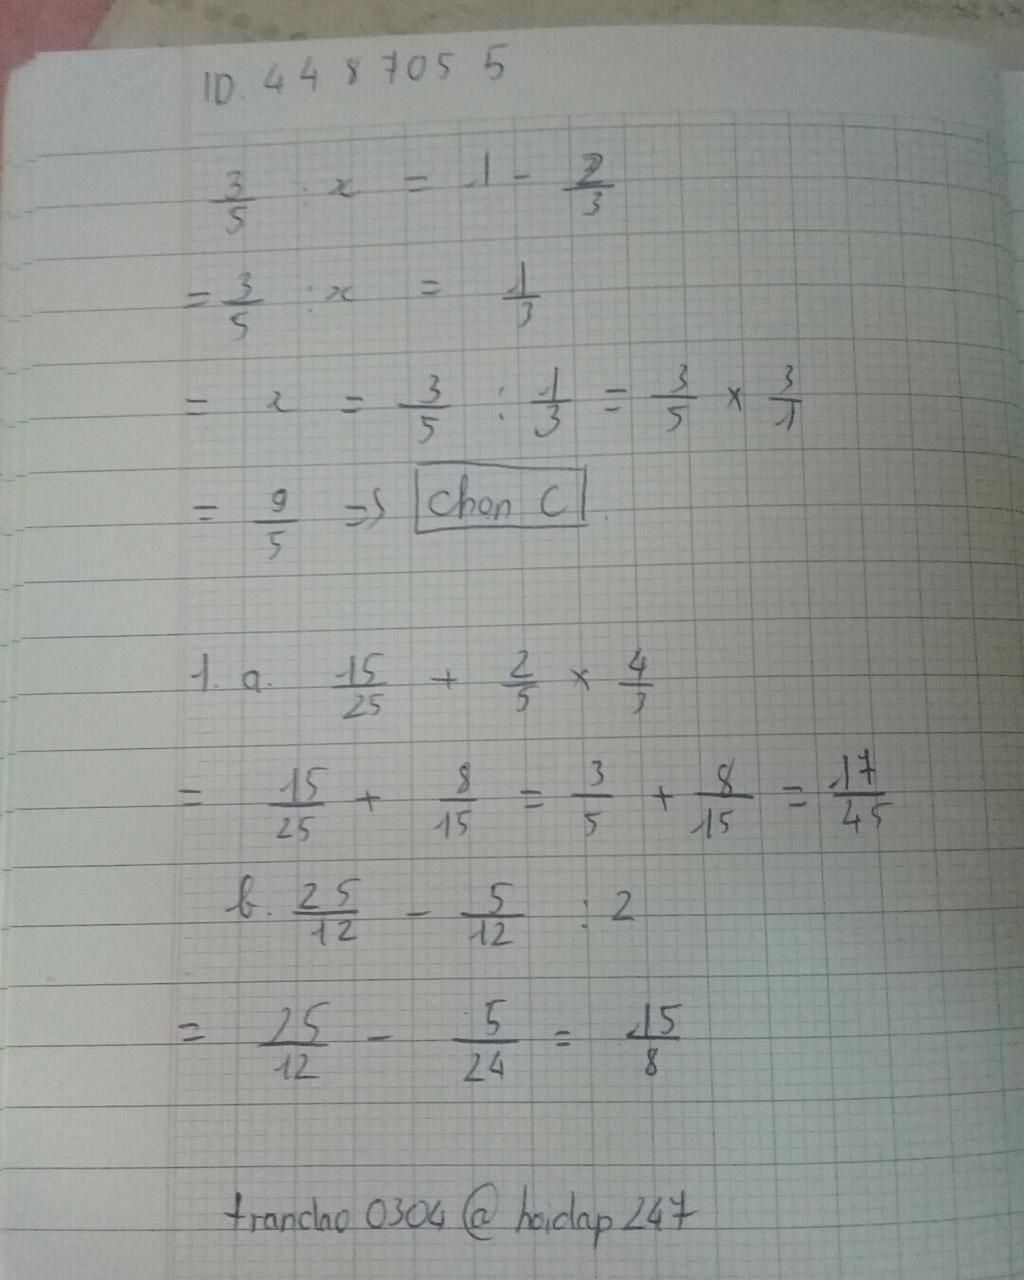 ID. 4487055
3/5 : x = 1 - 2/3
= 3/5 : x = 1/3
= x = 3/5 : 1/3 = 3/5 × 3/1
= 9/5 => Chọn C
1. a. 15/25 + 2/5 × 4/3
= 15/25 + 8/15 = 3/5 + 8/15 = 17/45
b. 25/12 - 5/12 : 2
= 25/12 - 5/24 = 15/8
trandao0304@hoidap247